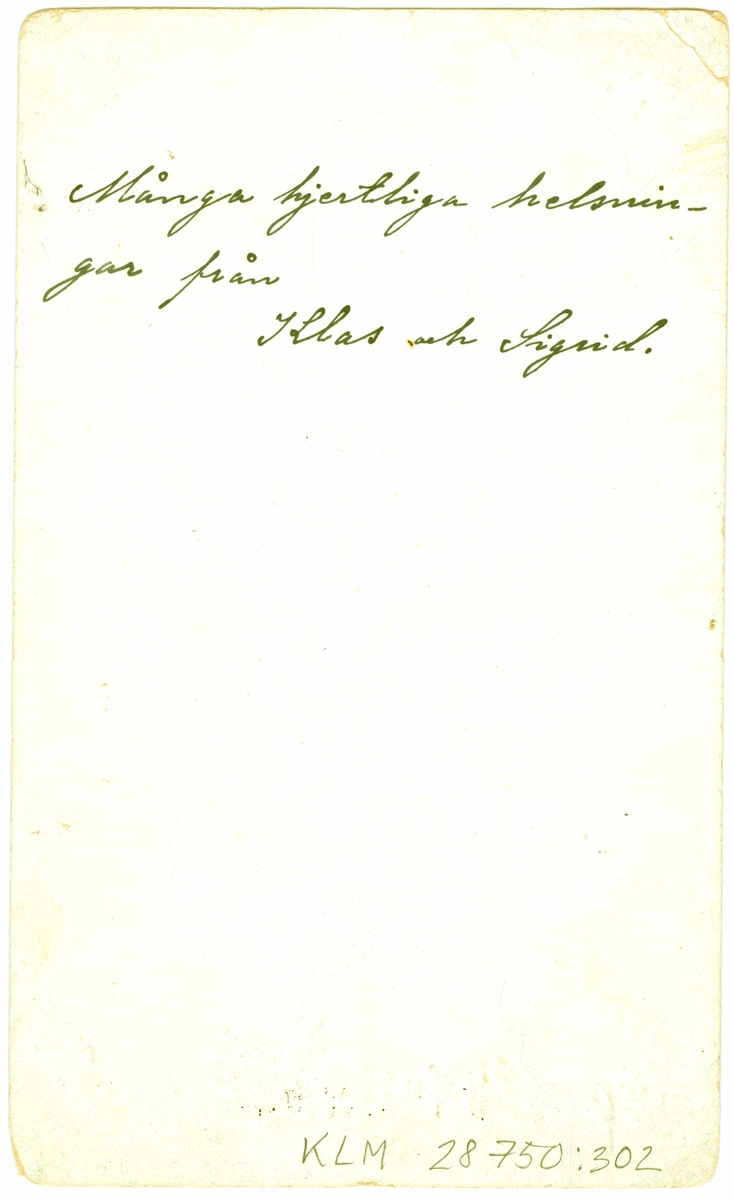 Många hjertliga helsnin-
gar från
Klas och Sigrid.
KLM 28750:302